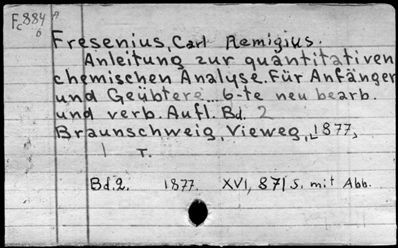 Fc 884 A
6
Fresenius, Carl Remigius.
Anleitung zur quantitativen
chemischen Analyse. Für Anfänger
und Geübtere ... 6-te neu bearb.
und verb. Aufl. Bd. 2
Braunschweig, Vieweg, 1877,
1 T.
Bd. 2. 1877. XVI, 871 S. mit Abb.